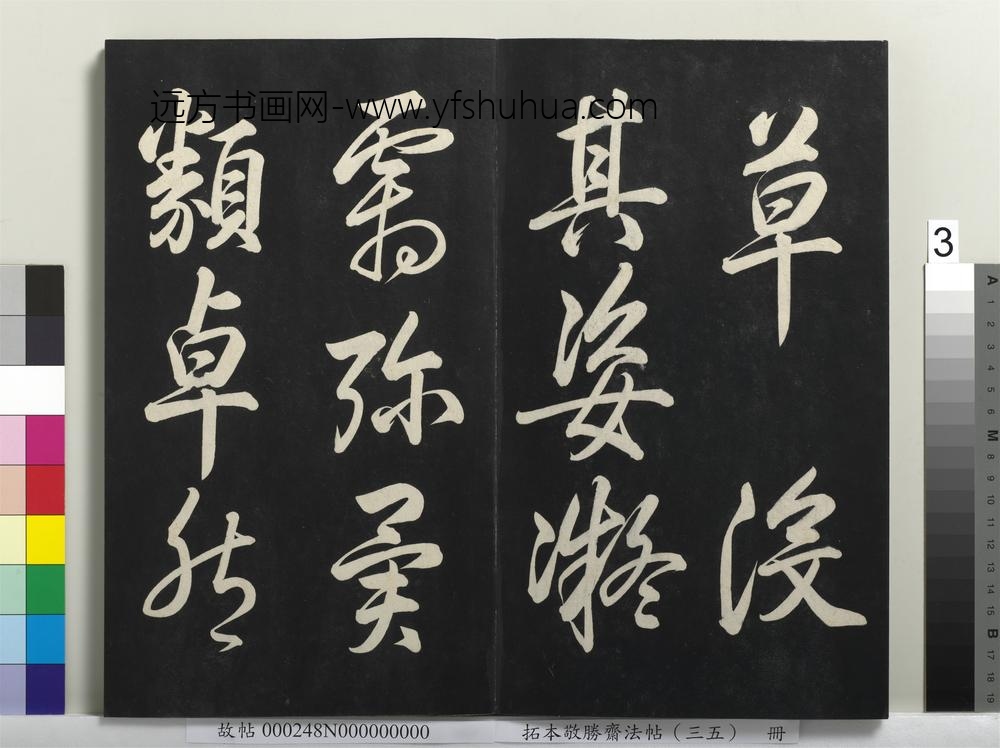 草没
其姿凝
霜殄異
類卓然
远方书画网-www.yfshuhua.com
3
A 1 2 3 4 5 6 M 8 9 10 11 12 13 14 15 B 17 18 19
故帖 000248N000000000
拓本敬勝齋法帖（三五） 冊